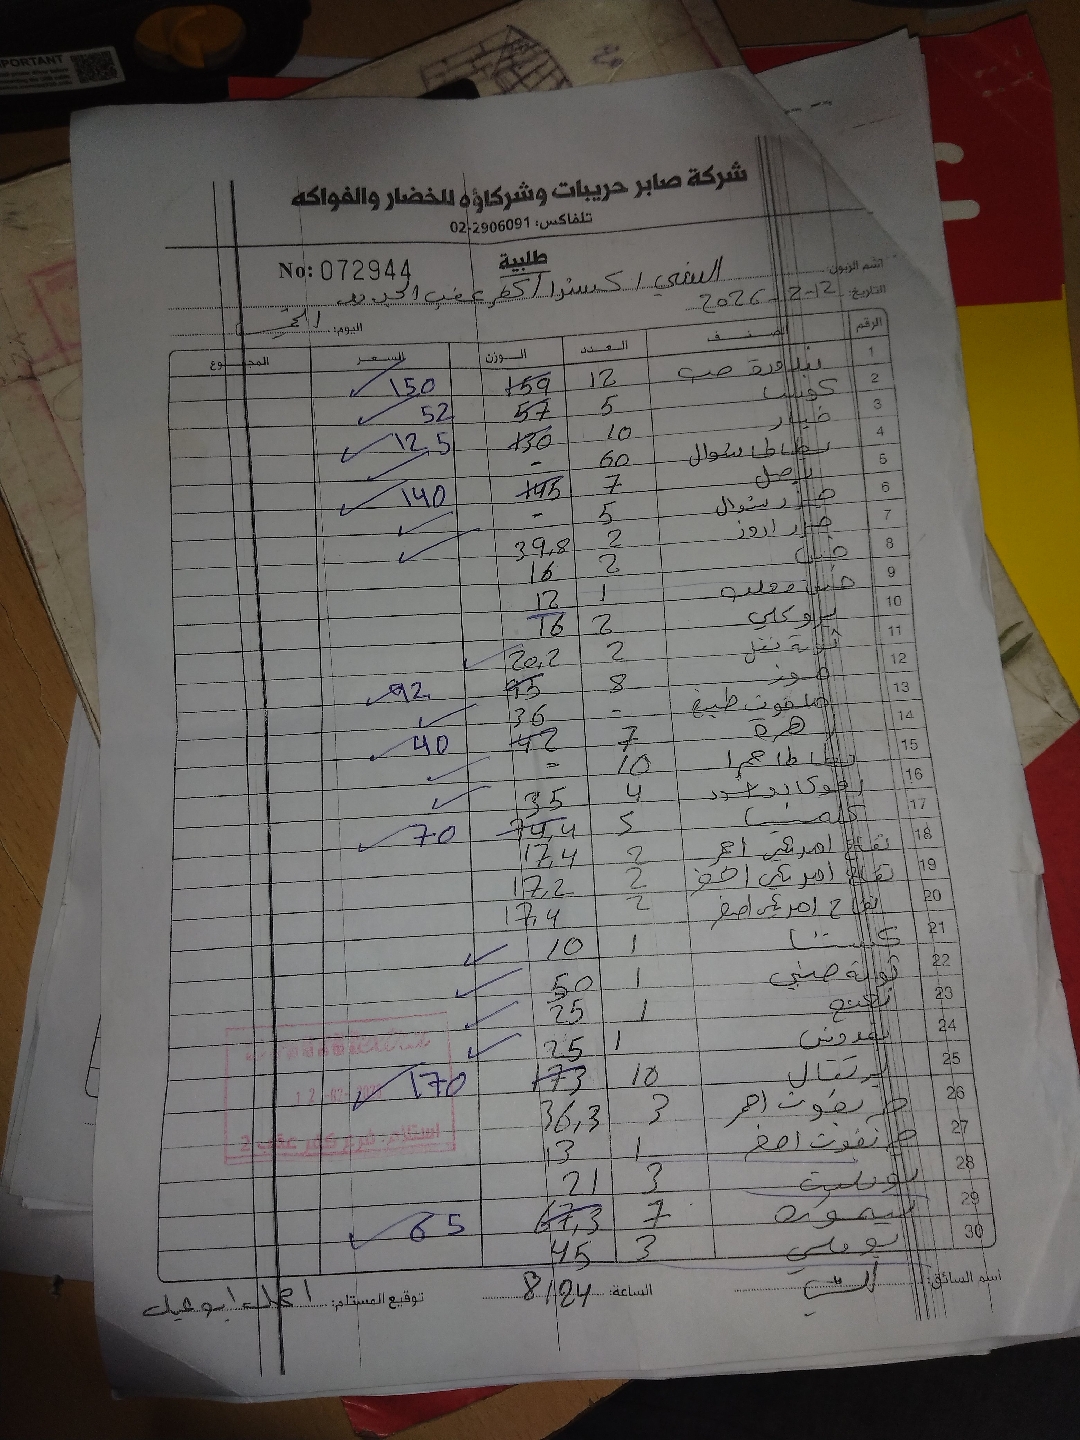 IMPORTANT
شركة صابر حريبات وشركاؤه للخضار والفواكه
تلفاكس: 02-2906091
طلبية
No: 072944
اسم الزبون:
التاريخ: 12-2-2026
اليوم:
الرقم الصنف العدد الوزن السعر المجموع
1 بندورة حب 12 159 150
2 كوسا 5 57 52
3 خيار 10 130 125
4 بطاطا شوال 60 -
5 بصل 7 145 140
6 جزر شوال 5 -
7 جزر اروز 2 39,8
8 خس 2 16
9 خس معلب 1 12
10 بروكلي 2 16
11 2 20,2
12 موز 8 95 92
13 ملفوف طبيخ - 36
14 زهرة 7 42 40
15 بطاطا حمرا 10 =
16 افوكادو اسود 4 35
17 كلمنتينا 5 74,4 70
18 تفاح امريكي احمر 2 17,4
19 تفاح امريكي اخضر 2 17,2
20 تفاح امريكي اصفر 2 17,4
21 كستنا 1 10
22 صيني 1 50
23 نعنع 1 25
24 بقدونس 1 25
25 برتقال 10 173 170
26 جريفوت احمر 3 36,3
27 اصفر 1 13
28 3 21
29 ليمون 7 67,3 65
30 بوملي 3 45
استلام: فرع كفر عقب 2
اسم السائق:
الساعة: 8/24
توقيع المستلم: